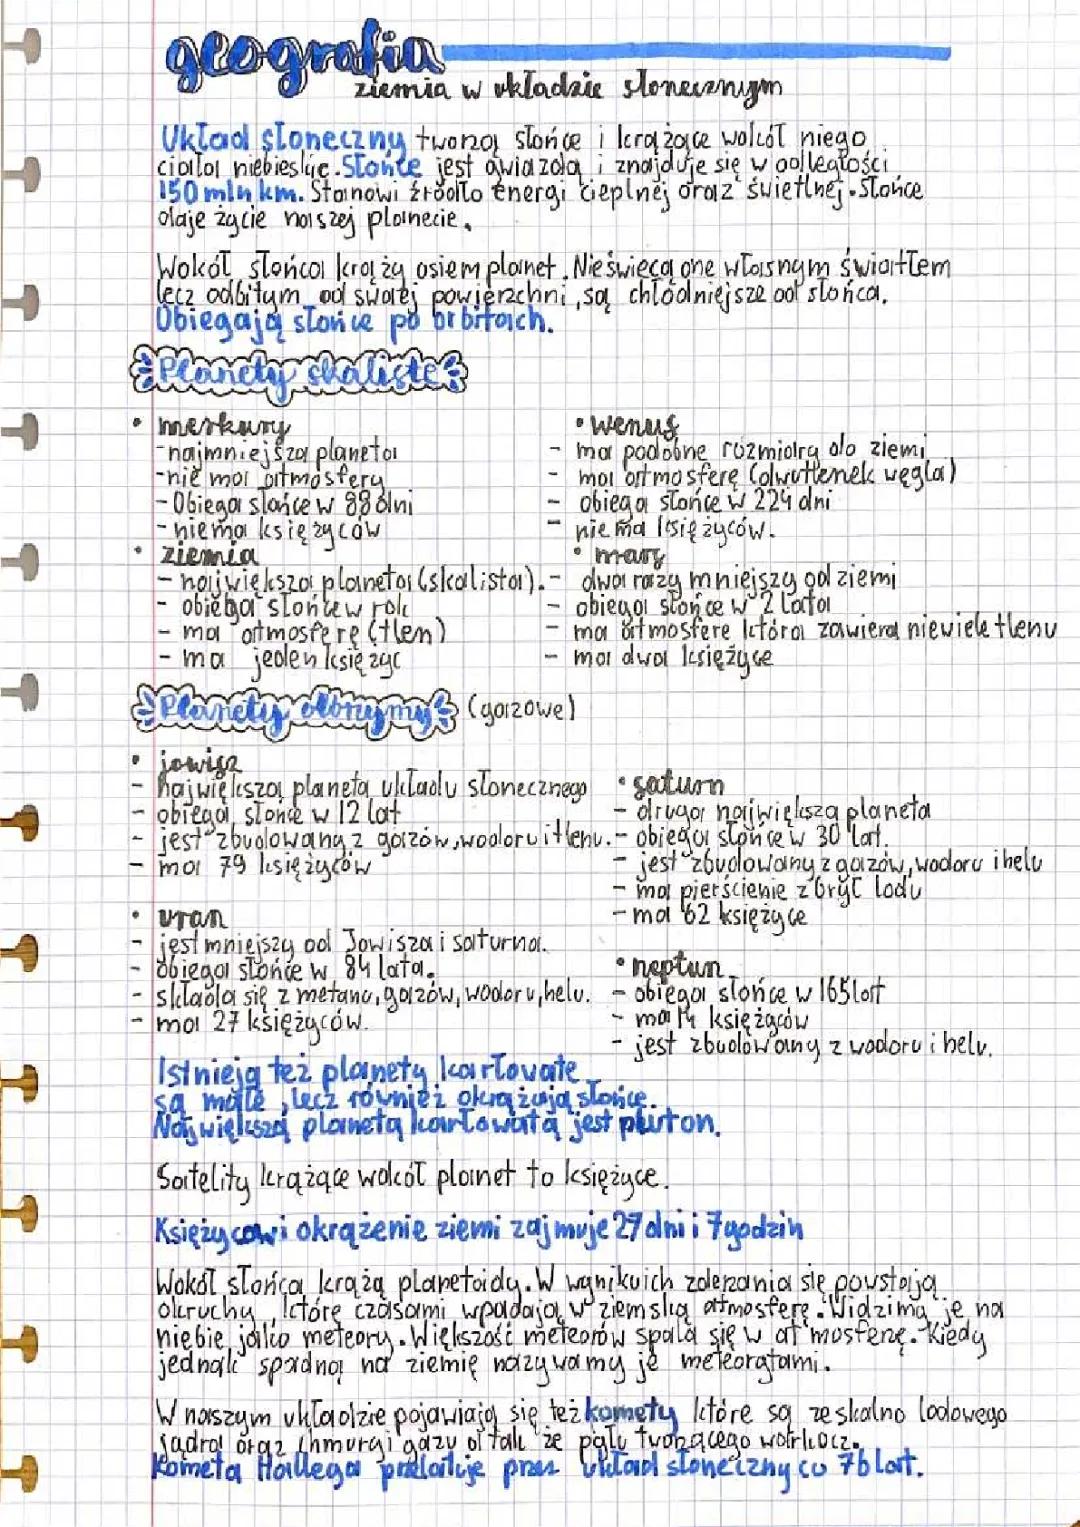 geografia
ziemia w układzie słonecznym
Układ słoneczny tworzą słońce i krążące wokół niego
ciała niebieskie. Słońce jest gwiazdą i znajduje się w odległości
150 mln km. Stanowi źródło energi cieplnej oraz świetlnej. Słońce
daje życie naszej planecie.
Wokół słońca krąży osiem planet. Nie świecą one własnym światłem
lecz odbitym od swojej powierzchni, są chłodniejsze od słońca.
Obiegają słońce po orbitach.
Planety skaliste
• merkury
-najmniejsza planeta
-nie ma atmosfery
- Obiega słońce w 88 dni
- nie ma księżyców
• wenus
- ma podobne rozmiary do ziemi
- ma atmosferę (dwutlenek węgla)
- obiega słońce w 224 dni
- nie ma księżyców.
• ziemia
- największa planeta (skalista).
- obiega słońce w rok
- ma atmosferę (tlen)
- ma jeden księżyc
• mars
- dwa razy mniejszy od ziemi
- obiega słońce w 2 lata
- ma atmosfere która zawiera niewiele tlenu
- ma dwa księżyce
Planety olbrzymy (gazowe)
• jowisz
- największa planeta układu słonecznego
- obiega słońce w 12 lat
- jest zbudowany z gazów, wodoru i tlenu.
- ma 79 księżyców
• saturn
- druga największa planeta
- obiega słońce w 30 lat.
- jest zbudowany z gazów, wodoru i helu
- ma pierścienie z brył lodu
- ma 62 księżyce
• uran
- jest mniejszy od Jowisza i saturna.
- obiega słońce w 84 lata.
- składa się z metanu, gazów, wodoru, helu.
- ma 27 księżyców.
• neptun
- obiega słońce w 165 lat
- ma 14 księżyców
- jest zbudowany z wodoru i helu.
Istnieją też planety karłowate
są małe, lecz również okrążają słońce.
Największą planetą karłowatą jest pluton.
Satelity krążące wokół planet to księżyce.
Księżycowi okrążenie ziemi zajmuje 27 dni i 7 godzin
Wokół słońca krążą planetoidy. W wynikuich zderzania się powstają
okruchy, które czasami wpadają w ziemską atmosferę. Widzimy je na
niebie jako meteory. Większość meteorów spala się w atmosferze. Kiedy
jednak spadną na ziemię nazywamy je meteorytami.
W naszym układzie pojawiają się też komety które są ze skalno lodowego
jądra oraz chmurgi gazu a tak że pyłu tworzącego warkocz.
Kometa Halleya przelatuje przez układ słoneczny co 76 lat.